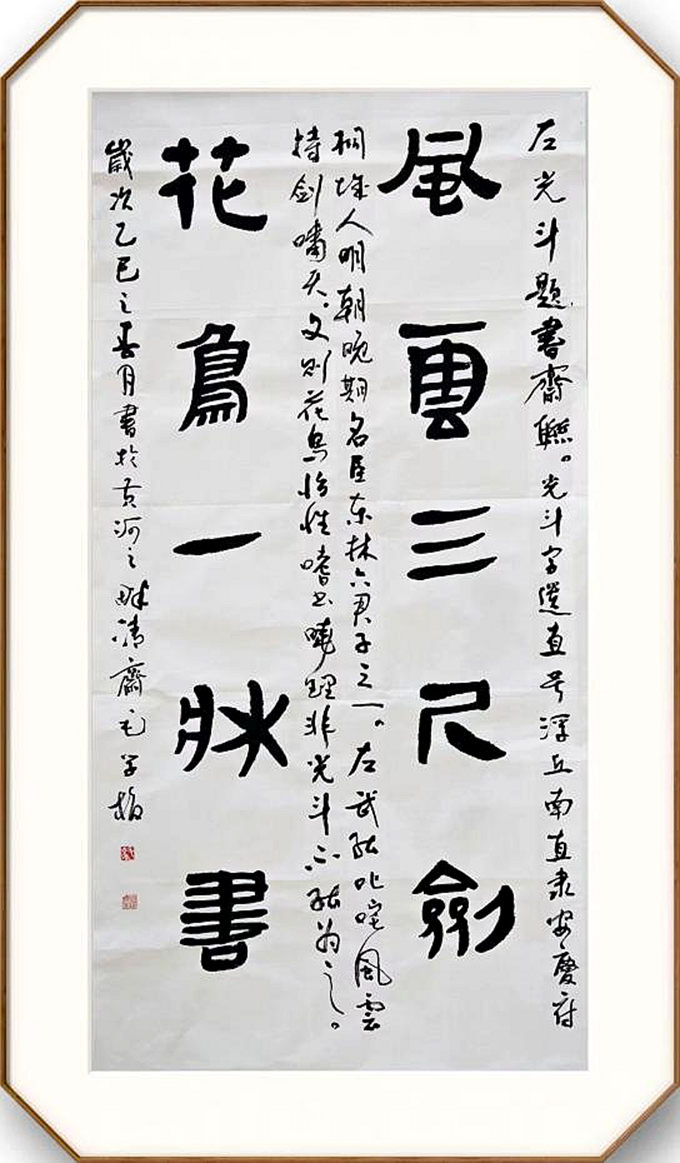 左光斗题書齋聯。光斗字遺直号浮丘南直隶安慶府
風雲三尺劍
桐城人明朝晚期名臣东林六君子之一。左武能叱咤風雲
持剑嘯天。文则花鸟怡性嗜书曉理非光斗不能为之。
花鳥一牀書
歲次乙巳之春月書於黄河之畔清齋毛学